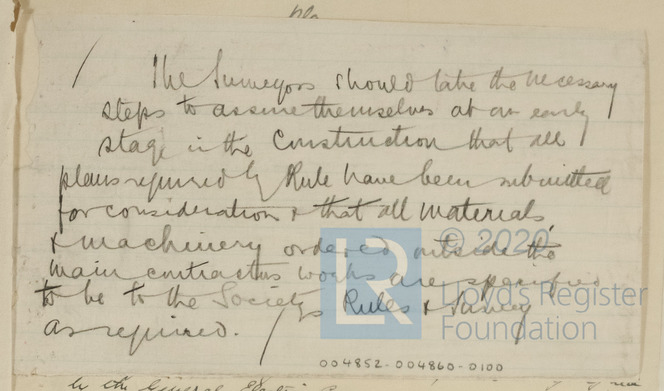 The Surveyors should take the necessary
steps to assure themselves at an early
stage in the Construction that all
plans required by Rule have been submitted
for consideration, & that all materials,
& machinery ordered outside the
main contractors works are specified
to be to the Society's Rules & Survey
as required.
© 2020
LR
Lloyd's Register
Foundation
004852-004860-0100
by the General